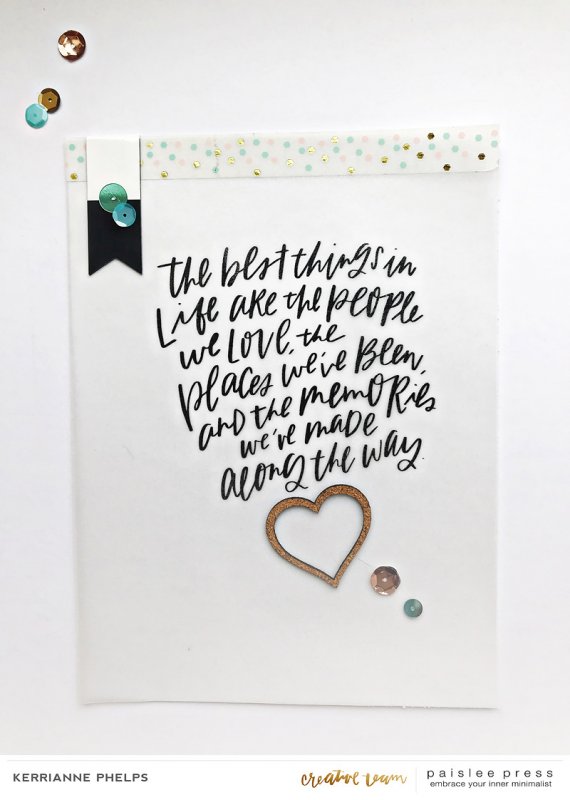 the best things in
Life are the people
we Love, the
places we've Been,
and the memories
we've made
along the way.
KERRIANNE PHELPS
creative team
paislee press
embrace your inner minimalist